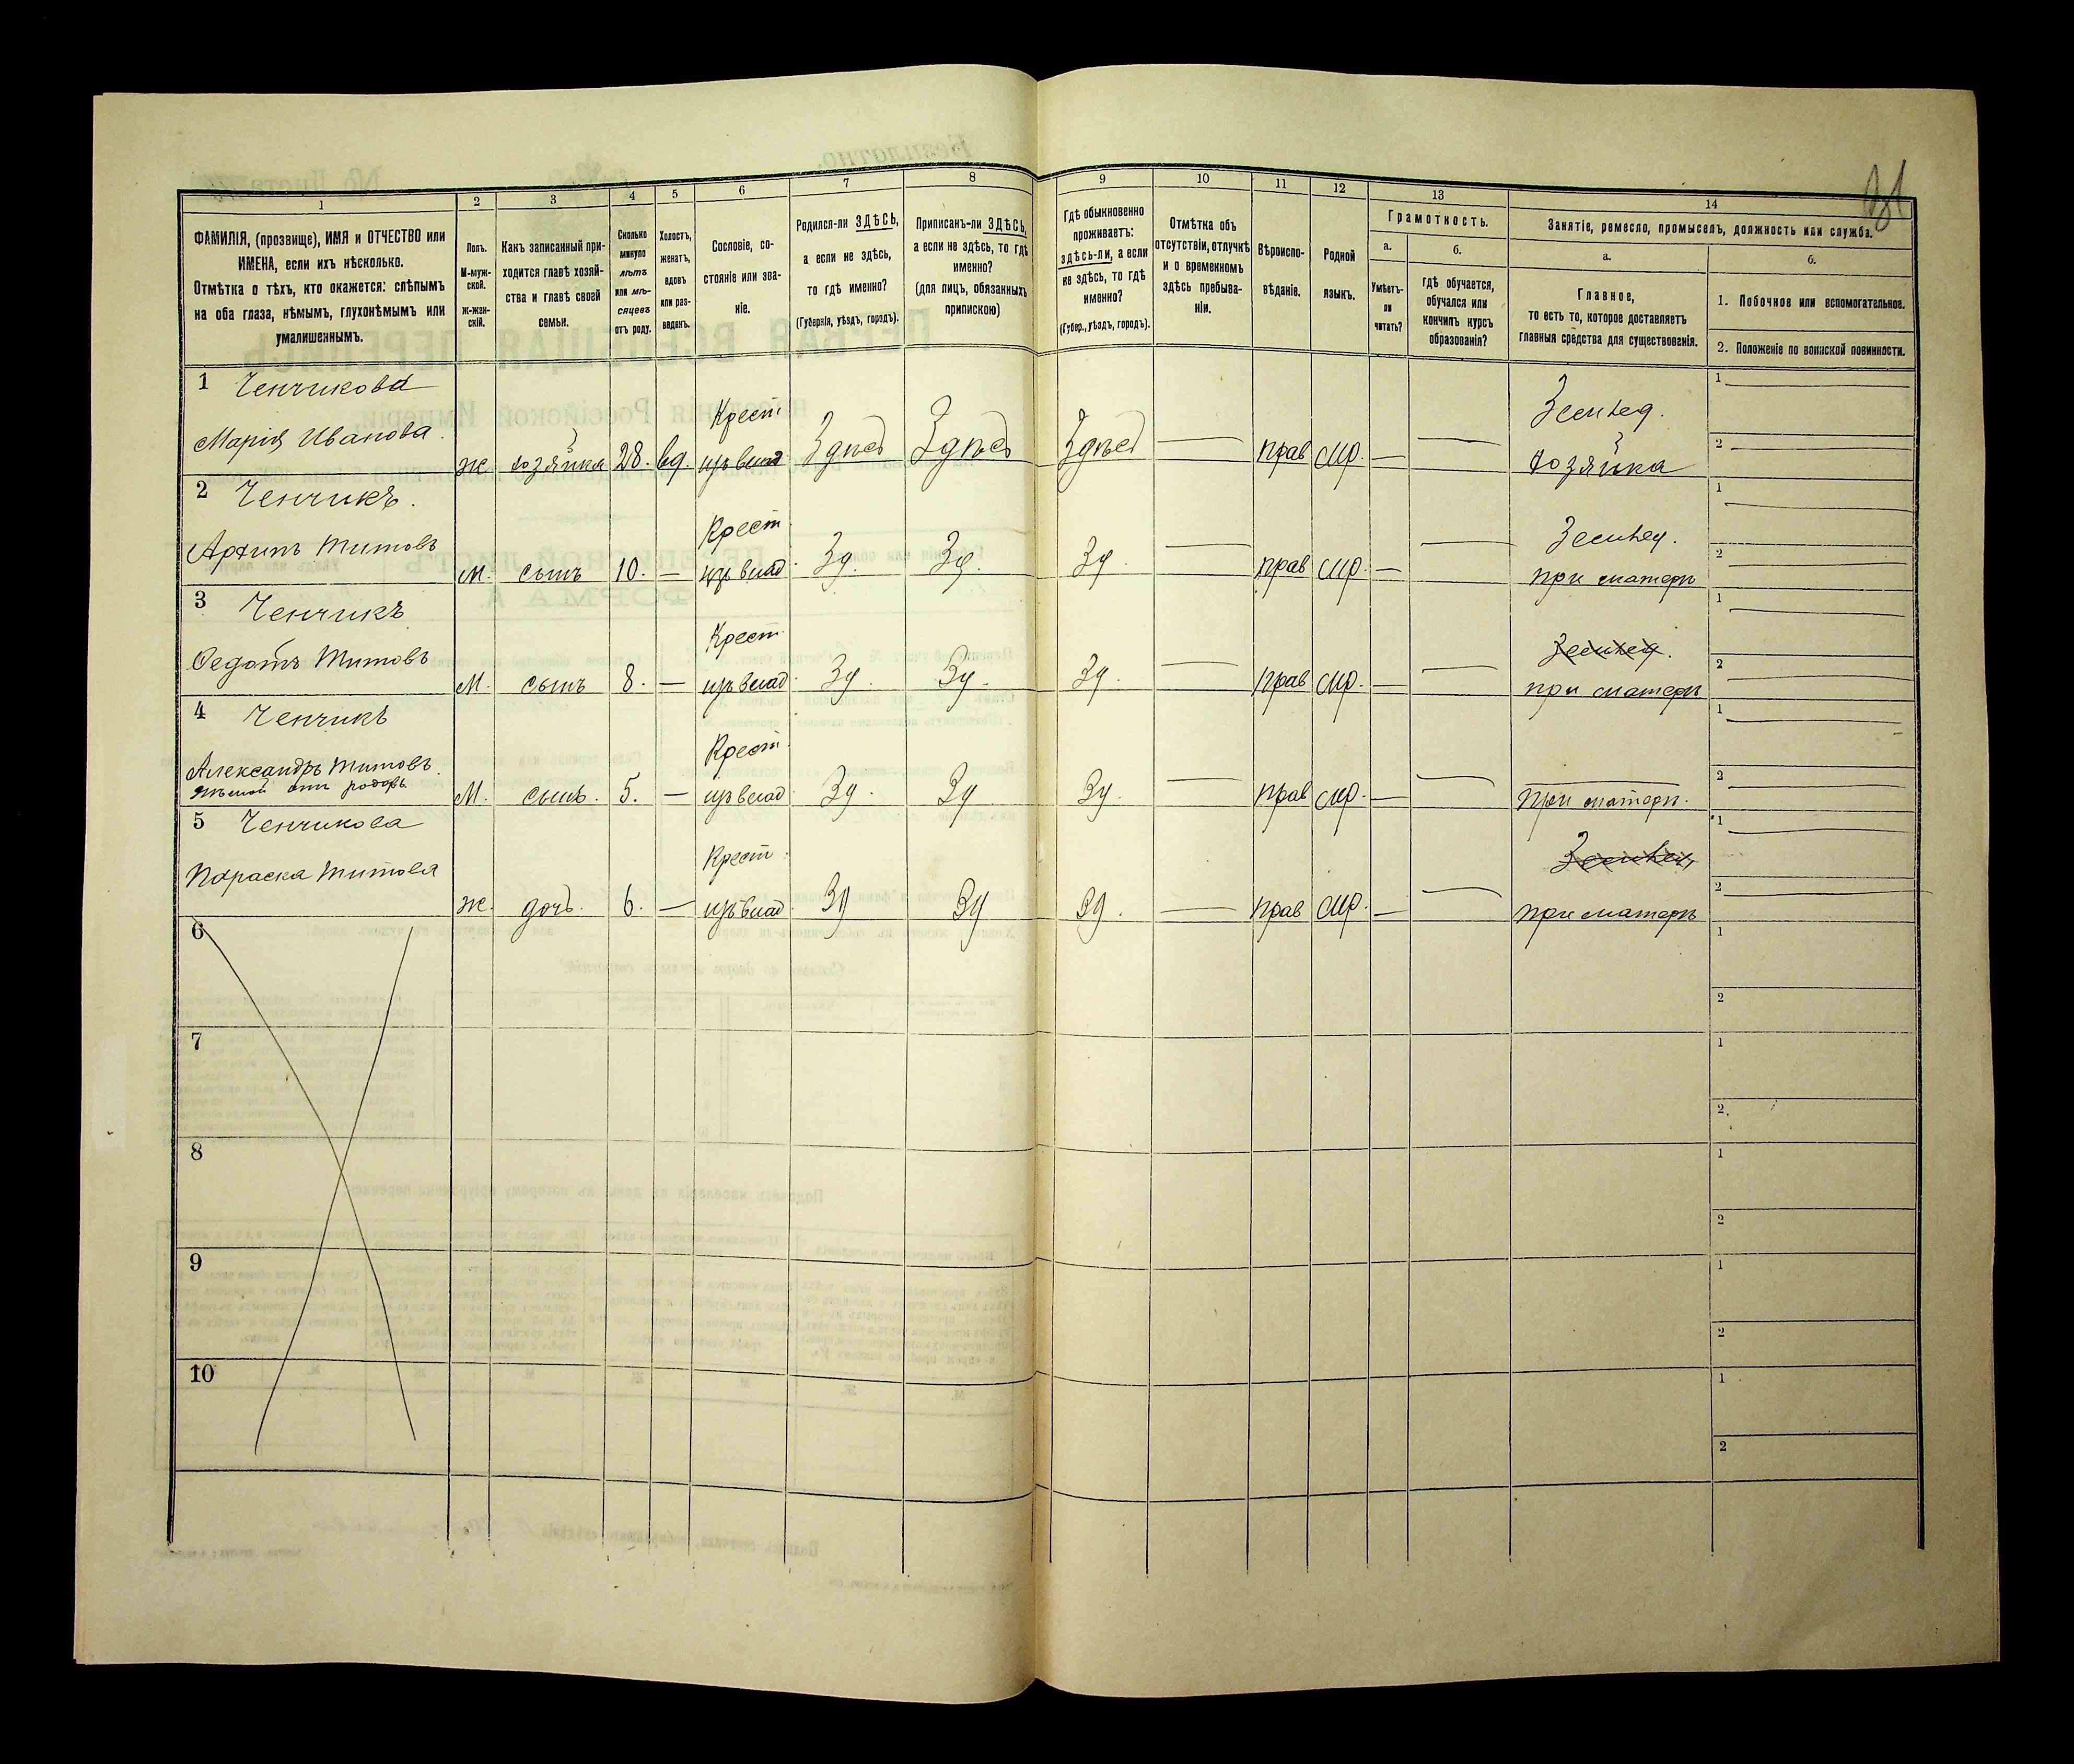 91
1
2
3
4
5
6
7
8
9
10
11
12
13
14
ФАМИЛІЯ, (прозвище), ИМЯ и ОТЧЕСТВО или
ИМЕНА, если ихъ нѣсколько.
Отмѣтка о тѣхъ, кто окажется: слѣпымъ
на оба глаза, нѣмымъ, глухонѣмымъ или
умалишеннымъ.
Полъ.
М-муж-
ской.
Ж-жен-
скій.
Какъ записанный при-
ходится главѣ хозяй-
ства и главѣ своей
семьи.
Сколько
минуло
лѣтъ
или мѣ-
сяцевъ
отъ роду.
Холостъ,
женатъ,
вдовъ
или раз-
веденъ.
Сословіе, со-
стояніе или зва-
ніе.
Родился-ли ЗДѢСЬ,
а если не здѣсь,
то гдѣ именно?
(Губернія, уѣздъ, городъ).
Приписанъ-ли ЗДѢСЬ,
а если не здѣсь, то гдѣ
именно?
(для лицъ, обязанныхъ
припискою)
Гдѣ обыкновенно
проживаетъ:
здѣсь-ли, а если
не здѣсь, то гдѣ
именно?
(Губер., уѣздъ, городъ).
Отмѣтка объ
отсутствіи, отлучкѣ
и о временномъ
здѣсь пребыва-
ніи.
Вѣроиспо-
вѣданіе.
Родной
языкъ.
Грамотность.
а.
Умѣетъ-
ли
читать?
б.
гдѣ обучается,
обучался или
кончилъ курсъ
образованія?
Занятіе, ремесло, промыселъ, должность или служба.
а.
Главное,
то есть то, которое доставляетъ
главныя средства для существованія.
б.
1. Побочное или вспомогательное.
2. Положеніе по воинской повинности.
1 Ченчикова
Марія Иванова.
Ж. хозяйка 28. вд. Крест. изъ влад Здѣсь Здѣсь Здѣсь — прав мр. — — Землед. хозяйка
1
2
2 Ченчикъ.
Архипъ Титовъ
М. сынъ 10. — Крест. изъ влад. Зд. Зд. Зд. — прав мр. — — Землед. при матери
1
2
3 Ченчикъ
Федотъ Титовъ
М. сынъ 8. — Крест. изъ влад. Зд. Зд. Зд. — прав мр. — — Землед. при матери
1
2
4 Ченчикъ
Александръ Титовъ.
М. сынъ. 5. — Крест. изъ влад. Зд. Зд Зд. — прав мр. — — При матери.
1
2
5 Ченчикова
Параска Титова
Ж. дочь. 6. — Крест. изъ влад. Зд Зд Зд. — прав мр. — — Землед. при матери
1
2
6
1
2
7
1
2.
8
1
2
9
1
2
10
1
2